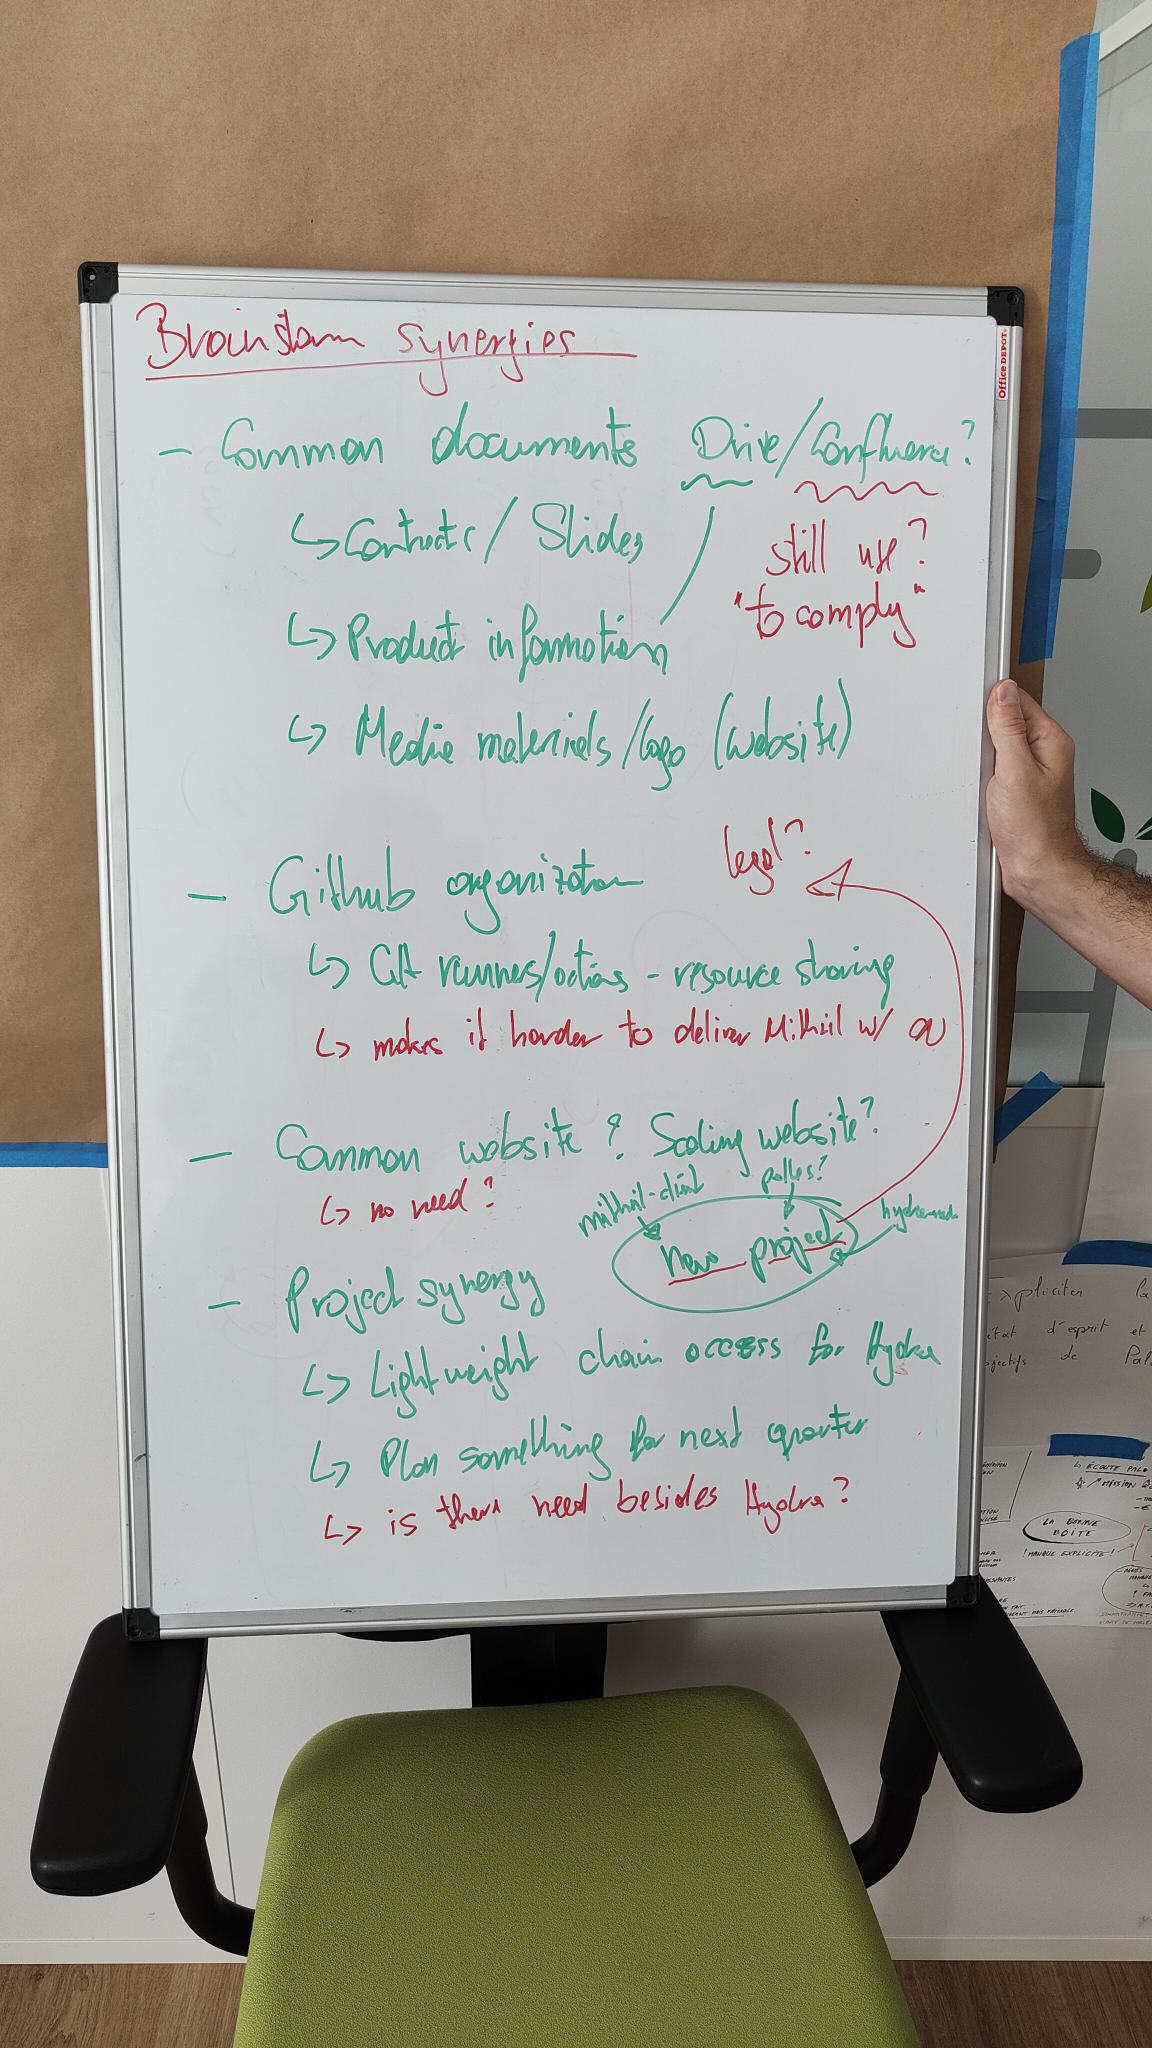 Brainstorm synergies
Office DEPOT
- Common documents Drive/Confluence?
↳ Contracts / Slides
still use?
"to comply"
↳ Product information
↳ Media materials/logo (website)
legal?
- Github organization
↳ GH runners/actions - resource sharing
↳ makes it harder to deliver Mithril w/
- Common website? Scaling website?
↳ no need?
mithril-client
pallas?
hydra-node
new project
- Project synergy
↳ Lightweight chain access for Hydra
↳ Plan something for next quarter
↳ is there need besides Hydra?
expliciter la
état d'esprit et
objectifs de
↳ ÉCOUTE
MISSION
LA BONNE
BOÎTE
! MANQUE EXPLICITE!